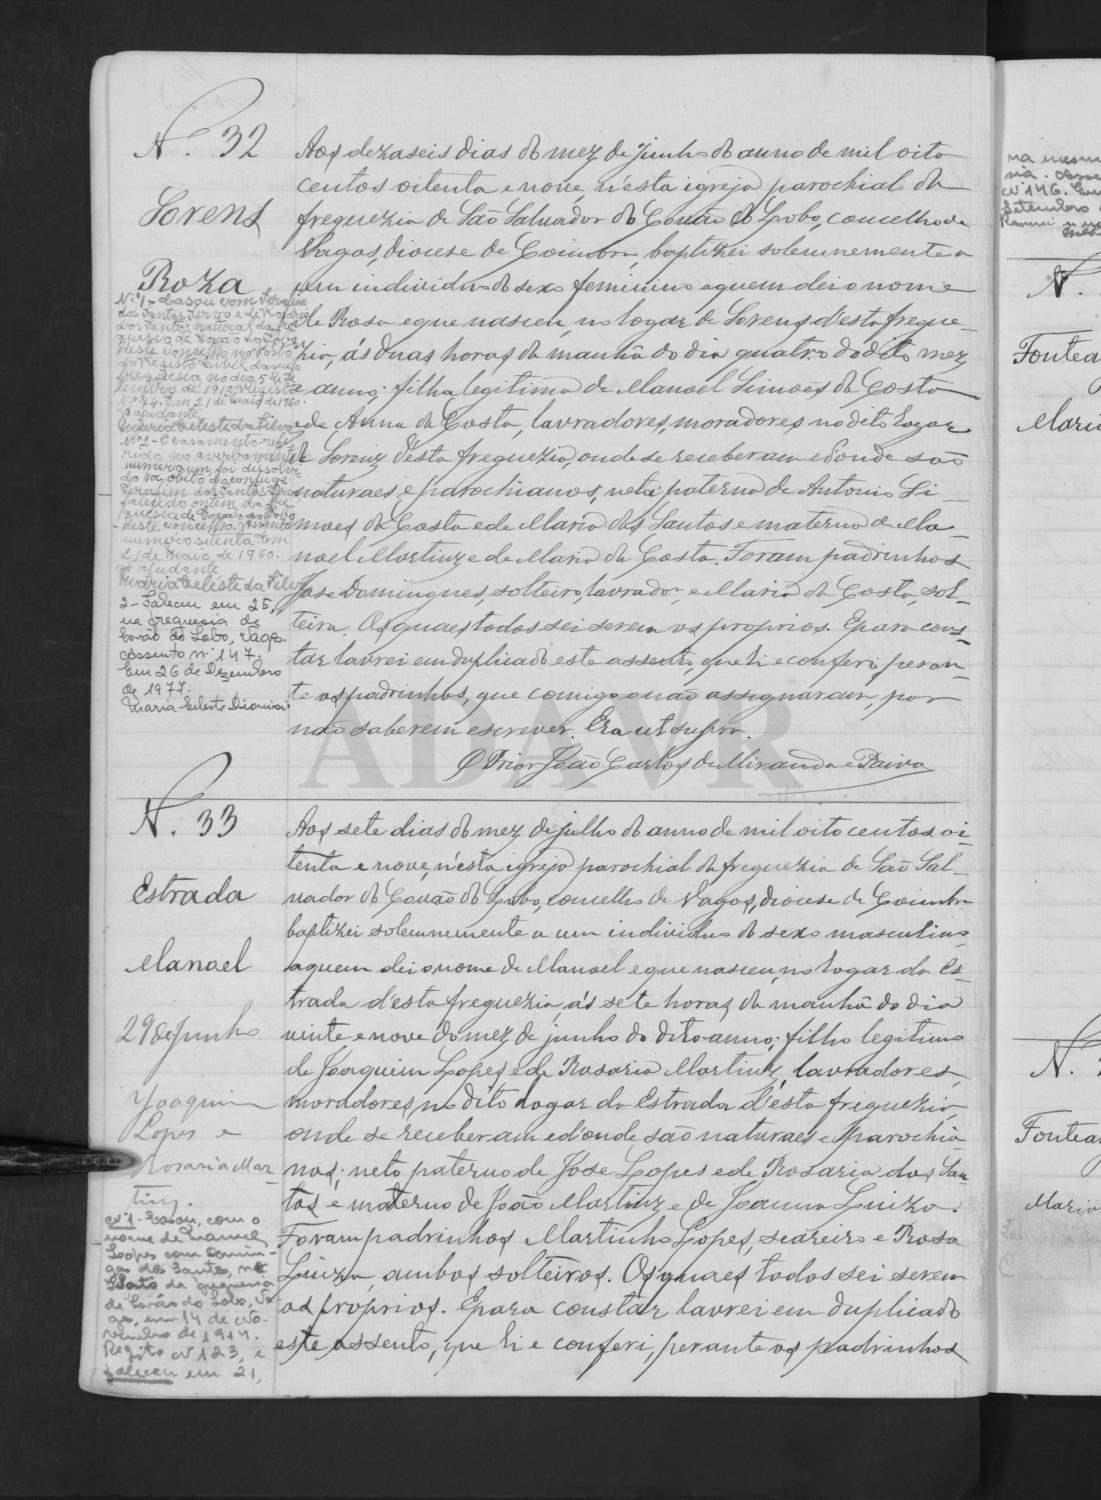 N.º 32
Lorenz
Roza
Nº 1 - Casou com Serafim
dos Santos
dos Santos natural da fre
guesia de Covão do Lobo
deste concelho no Posto
do Registo Civil da dita
freguesia no dia 5 de
de 1913. Registo
Nº 74. Em 21 de maio de 1960.
O ajudante
Maria Celeste da Silva
Nº 2 - O casamento refe
rido no averbamento
numero um foi dissolvi
do por obito do conjuge
Serafim dos Santos
falecido ontem na fre
guesia de Covão do Lobo
deste concelho. Assento
numero setenta. Em
21 de maio de 1960.
O ajudante
Maria Celeste da Silva
2 - Faleceu em 25,
na freguesia de
Covão do Lobo, Vagos.
Assento nº 147.
Em 26 de Dezembro
de 1977.
Maria Celeste Dionisia
Aos dezaseis dias do mez de Junho do anno de mil oito
centos oitenta e nove, n'esta igreja parochial da
freguezia de São Salvador do Covão do Lobo, concelho de
Vagos, diocese de Coimbra, baptizei solemnemente a
um individuo do sexo feminino a quem dei o nome
de Rosa e que nasceu, no logar de Lorenz d'esta fregue-
zia, ás duas horas da manhã do dia quatro do dito mez
e anno; filha legitima de Manoel Simoes da Costa
e de Anna da Costa, lavradores, moradores no dito logar
de Lorenz d'esta freguezia, onde se receberam e d'onde são
naturaes e parochianos, neta paterna de Antonio Si-
moes da Costa e de Maria dos Santos e materna de Ma-
noel Martinz e de Maria da Costa. Foram padrinhos
Jose Domingues, solteiro, lavrador, e Maria da Costa, sol-
teira. Os quaes todos sei serem os proprios. E para cons-
tar lavrei em duplicado este assento, que li e conferi peran-
te os padrinhos, que comigo não assignaram, por
não saberem escrever. Era ut supra.
O Prior João Carlos de Miranda e Paiva
ADAVR
N.º 33
Estrada
Manoel
29 de Junho
Joaquim
Lopes e
Rosaria Mar
tinz.
Nº 1 - Casou, com o
nome de Manuel
Lopes com Domin-
gas dos Santos, no
Posto da freguesia
de Covão do Lobo, Va-
gos, em 14 de No-
vembro de 1914.
Registo nº 123, e
faleceu em 21,
Aos sete dias do mez de julho do anno de mil oito centos oi-
tenta e nove, n'esta igreja parochial da freguezia de São Sal-
vador do Covão do Lobo, concelho de Vagos, diocese de Coimbra
baptizei solemnemente a um individuo do sexo masculino
a quem dei o nome de Manoel e que nasceu, no logar da Es-
trada d'esta freguezia, ás sete horas da manhã do dia
vinte e nove do mez de junho do dito anno; filho legitimo
de Joaquim Lopes e de Rosaria Martinz, lavradores,
moradores no dito logar da Estrada d'esta freguezia,
onde se receberam e d'onde são naturaes e parochia
nos; neto paterno de Jose Lopes e de Rosaria dos San-
tos e materno de João Martinz e de Joanna Luiza.
Foram padrinhos Martinho Lopes, seareiro e Rosa
Luiza, ambos solteiros. Os quaes todos sei serem
os proprios. E para constar lavrei em duplicado
este assento, que li e conferi, perante os padrinhos
nº 146. Em
Setembro
N.
Fontea
Maria
N.
Fontea
Maria